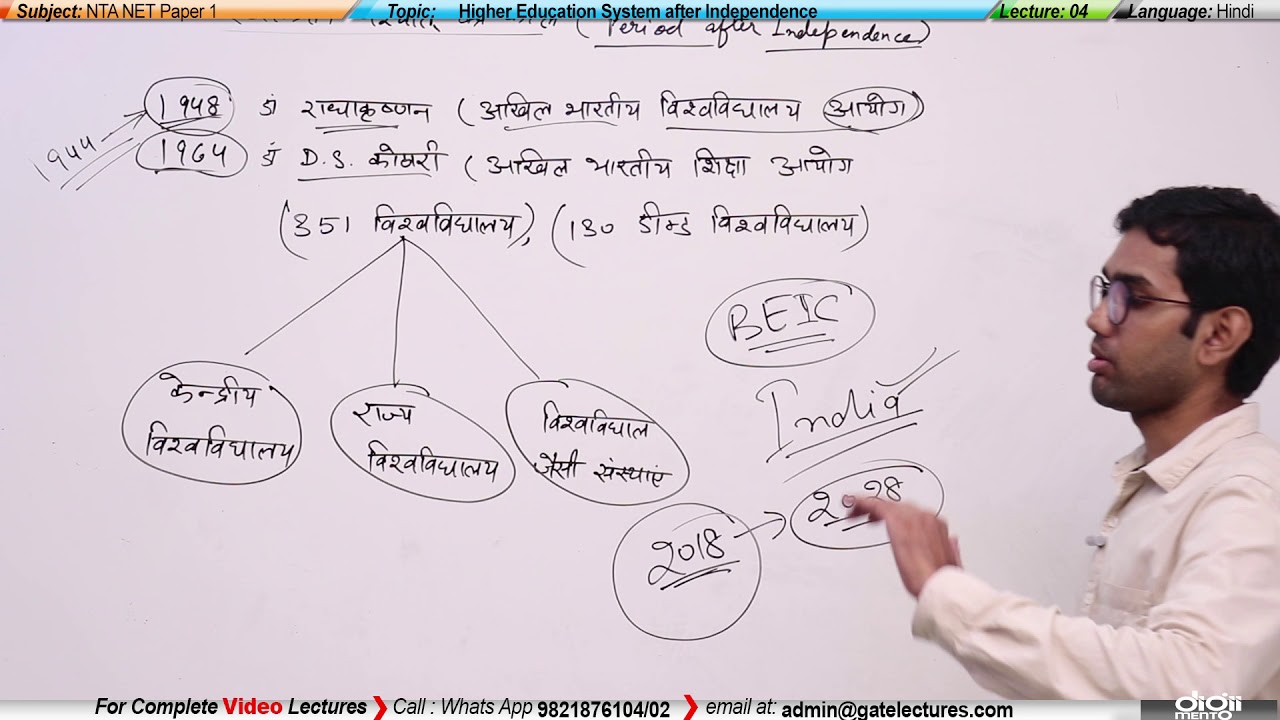 Subject: NTA NET Paper 1 Topic: Higher Education System after Independence Lecture: 04 Language: Hindi
(Period after Independence)
1948 डॉ राधाकृष्णन (अखिल भारतीय विश्वविद्यालय आयोग)
1944
1964 डॉ D.S. कोठारी (अखिल भारतीय शिक्षा आयोग
(351 विश्वविद्यालय), (130 डीम्ड विश्वविद्यालय)
BEIC
केन्द्रीय विश्वविद्यालय
राज्य विश्वविद्यालय
विश्वविद्याल जैसी संस्थाएं
India
२०१8 २०२8
For Complete Video Lectures ❯ Call : Whats App 9821876104/02 ❯ email at: admin@gatelectures.com
digiimento